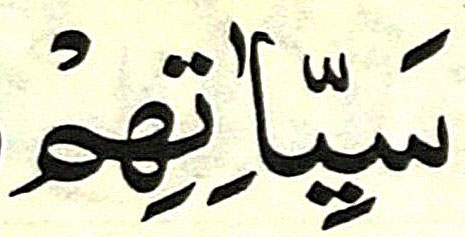 سَيِّاٰتِهِمْ